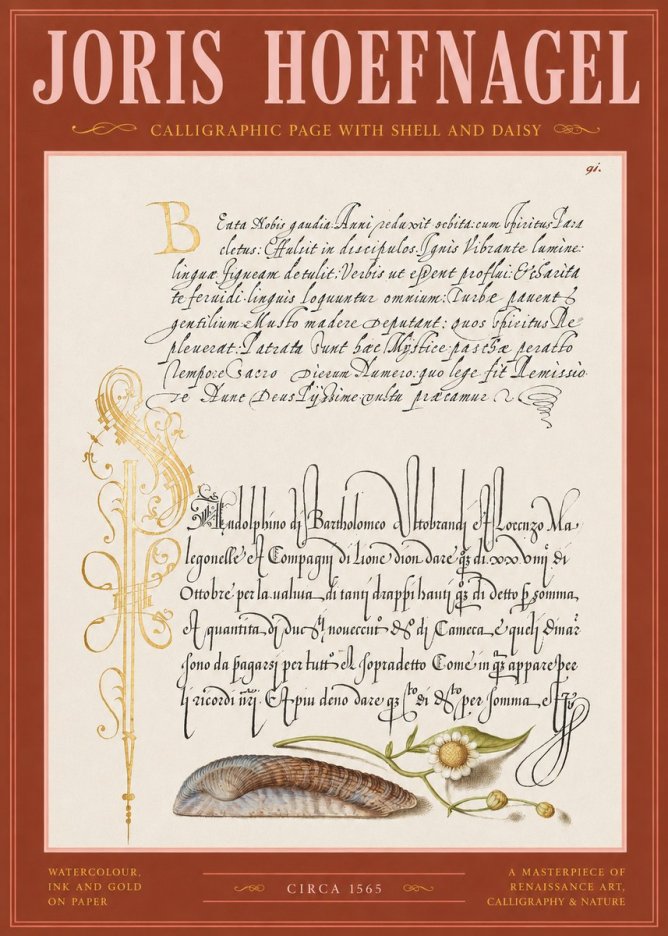 JORIS HOEFNAGEL
CALLIGRAPHIC PAGE WITH SHELL AND DAISY
91.
Beata Nobis gaudia. Anni reduxit orbita: cum spiritus Para
cletus: Effulsit in discipulos. Ignis Vibrante lumine:
linguæ figueam detulit: Verbis ut essent proflui: Et Charita
te feruidi: linguis loquuntur omnium: Turbæ pauent
gentilium: Musto madere Deputant: quos spiritus Re
pleuerat: Patrata sunt hæc Mystice: paschæ peracto
tempore: Sacro Dierum Numero: quo lege fit Remissio
Te Nunc Deus Pijssime: vultu præcamur
Landolphino di Bartholomeo Altobrandi et Lorenzo Ma
legonelle et Compagni di Lione dion dare di. xxviiij di
Ottobre per la ualuta di tanti drappi hauti di detto somma
et quantita di nouecento di Camera e queli
sono da pagarsi per tutto el sopradetto Come in appare per
li ricordi nri. Et piu deno dare di per somma e
WATERCOLOUR,
INK AND GOLD
ON PAPER
CIRCA 1565
A MASTERPIECE OF
RENAISSANCE ART,
CALLIGRAPHY & NATURE